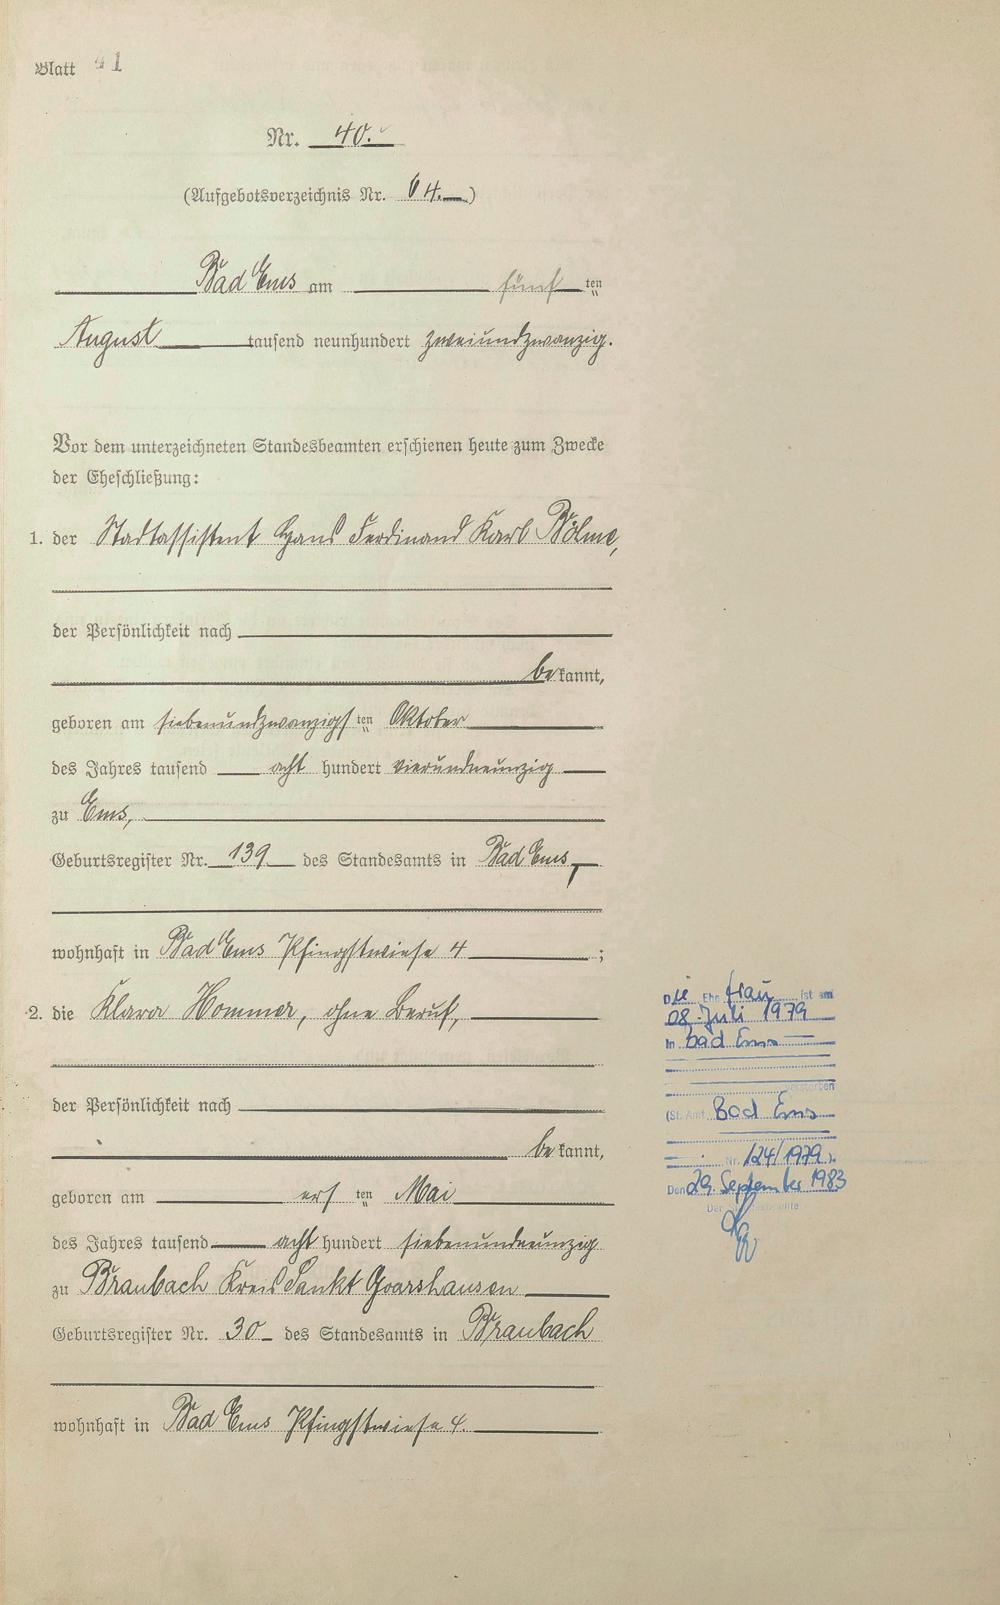 Blatt 41
Nr. 40.
(Aufgebotsverzeichnis Nr. 64.)
Bad Ems am fünf ten
August tausend neunhundert zweiundzwanzig.
Vor dem unterzeichneten Standesbeamten erschienen heute zum Zwecke
der Eheschließung:
1. der Stadtassistent Hans Ferdinand Karl Böhme,
der Persönlichkeit nach
be kannt,
geboren am siebenundzwanzigs ten Oktober
des Jahres tausend acht hundert vierundneunzig
zu Ems,
Geburtsregister Nr. 139 des Standesamts in Bad Ems,
wohnhaft in Bad Ems Pfingstwiese 4 ;
2. die Klara Hommer, ohne Beruf,
der Persönlichkeit nach
be kannt,
geboren am ers ten Mai
des Jahres tausend acht hundert siebenundneunzig
zu Braubach Kreis Sankt Goarshausen
Geburtsregister Nr. 30 des Standesamts in Braubach
wohnhaft in Bad Ems Pfingstwiese 4.
Die Ehefrau ist am
08. Juli 1979
in Bad Ems
verstorben
(St. Amt Bad Ems
Nr. 124/1979).
Den 29. September 1983
Der Standesbeamte